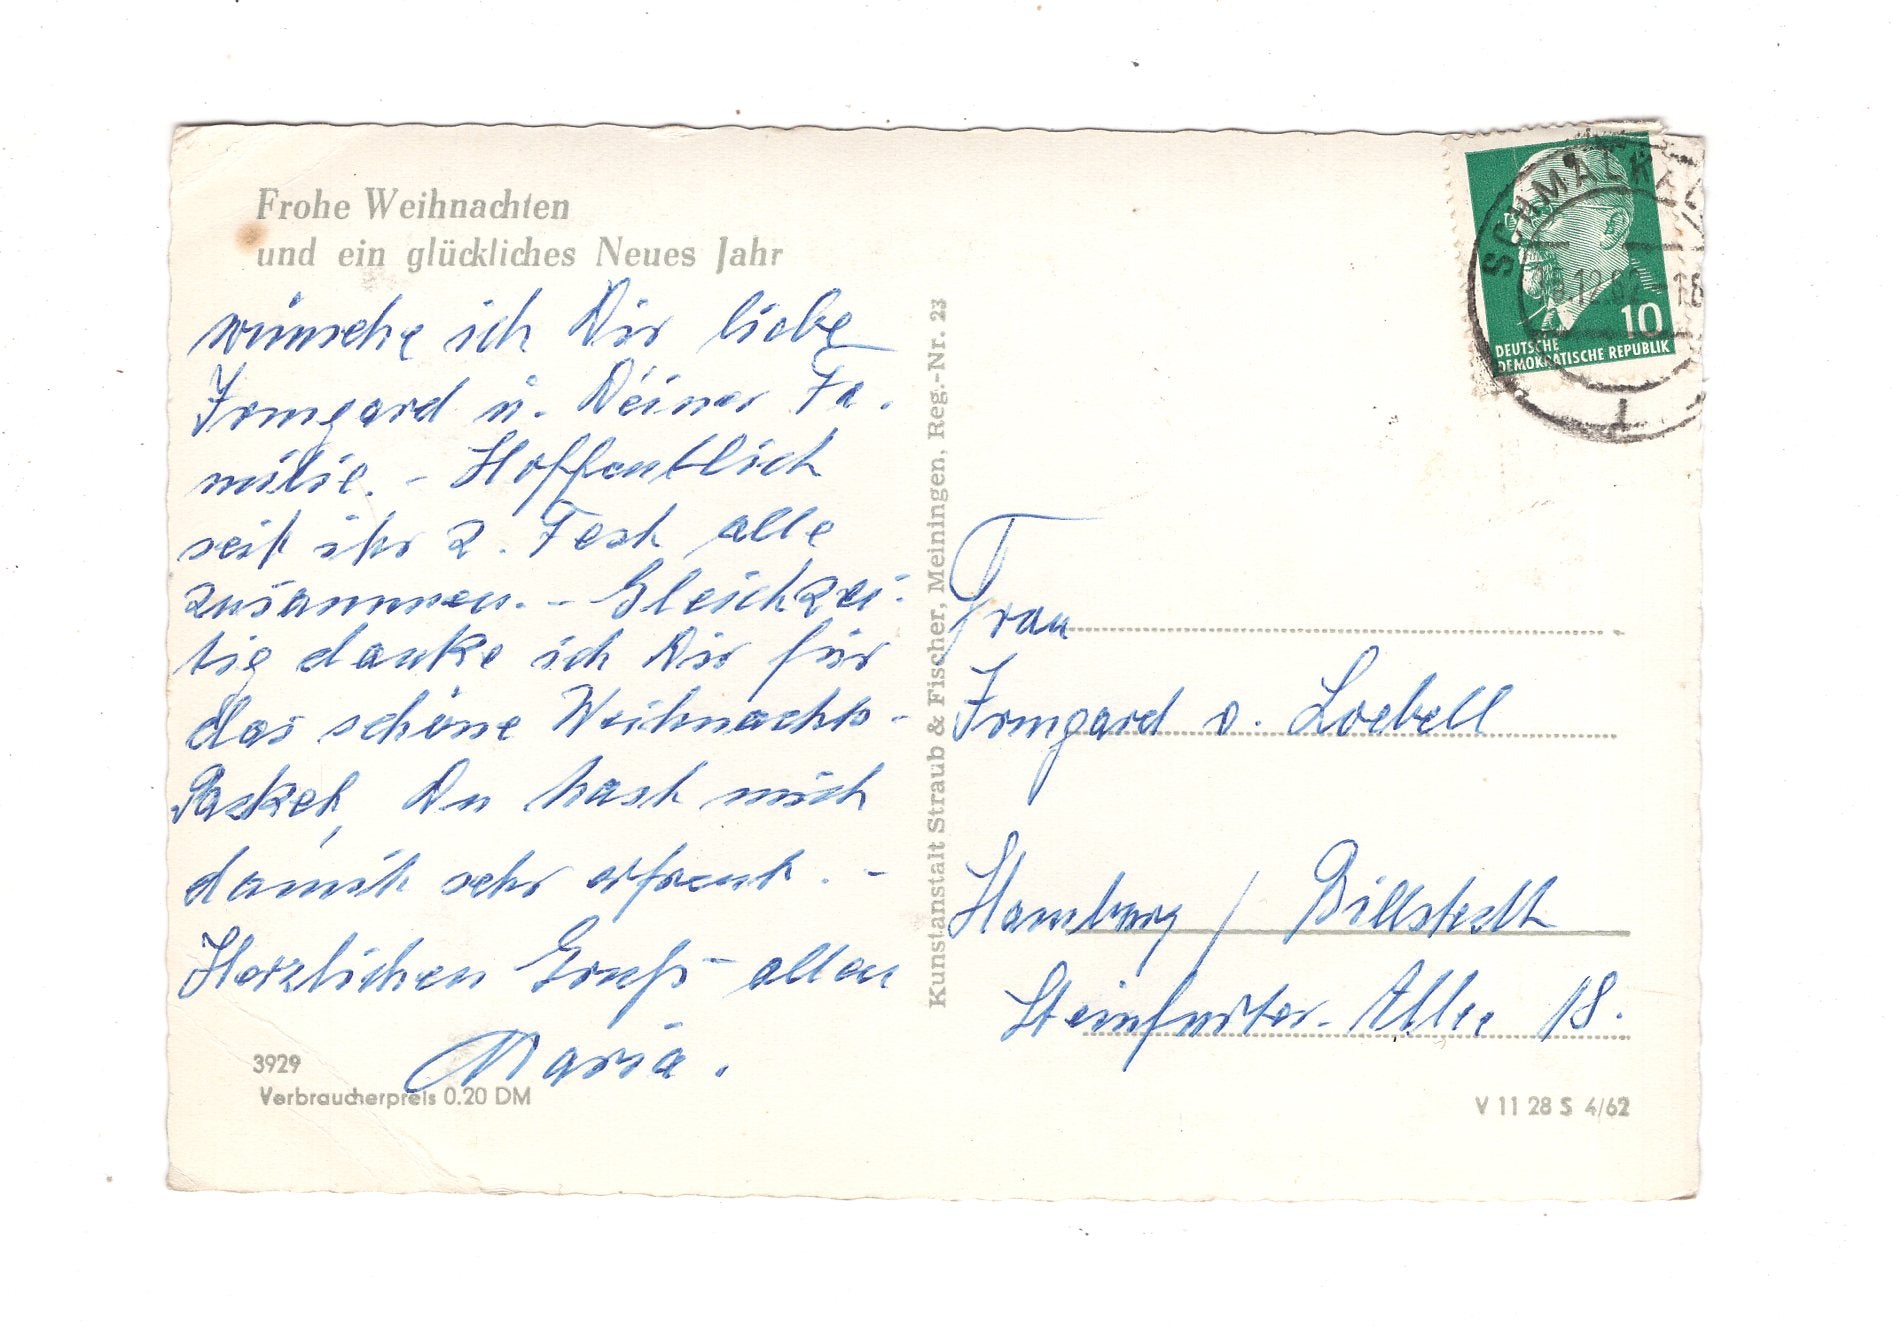 Frohe Weihnachten
und ein glückliches Neues Jahr
wünsche ich Dir liebe
Irmgard u. Deiner Fa-
milie. - Hoffentlich
seit ihr z. Fest alle
zusammen. - Gleichzei-
tig danke ich Dir für
das schöne Weihnachts-
Paket, Du hast mich
damit sehr erfreut. -
Herzlichen Gruß allen
Maria.
3929
Verbraucherpreis 0.20 DM
Kunstanstalt Straub & Fischer, Meiningen, Reg.-Nr. 23
SCHMALKAL
.12.62-18
10
DEUTSCHE
DEMOKRATISCHE REPUBLIK
1
Frau
Irmgard v. Loebell
Hamburg / Billstedt
Steinfurter-Allee 18.
V 11 28 S 4/62